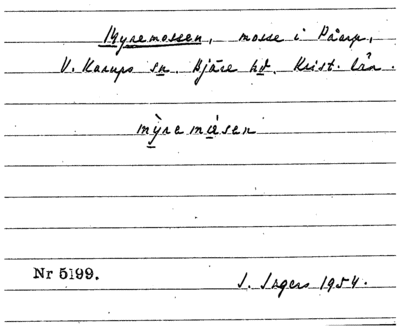 Myremossen, mosse i Påarp,
V. Karups sn. Bjäre hd. Krist. län.
mỳremåsen
Nr 5199.
J. Ingers 1954.